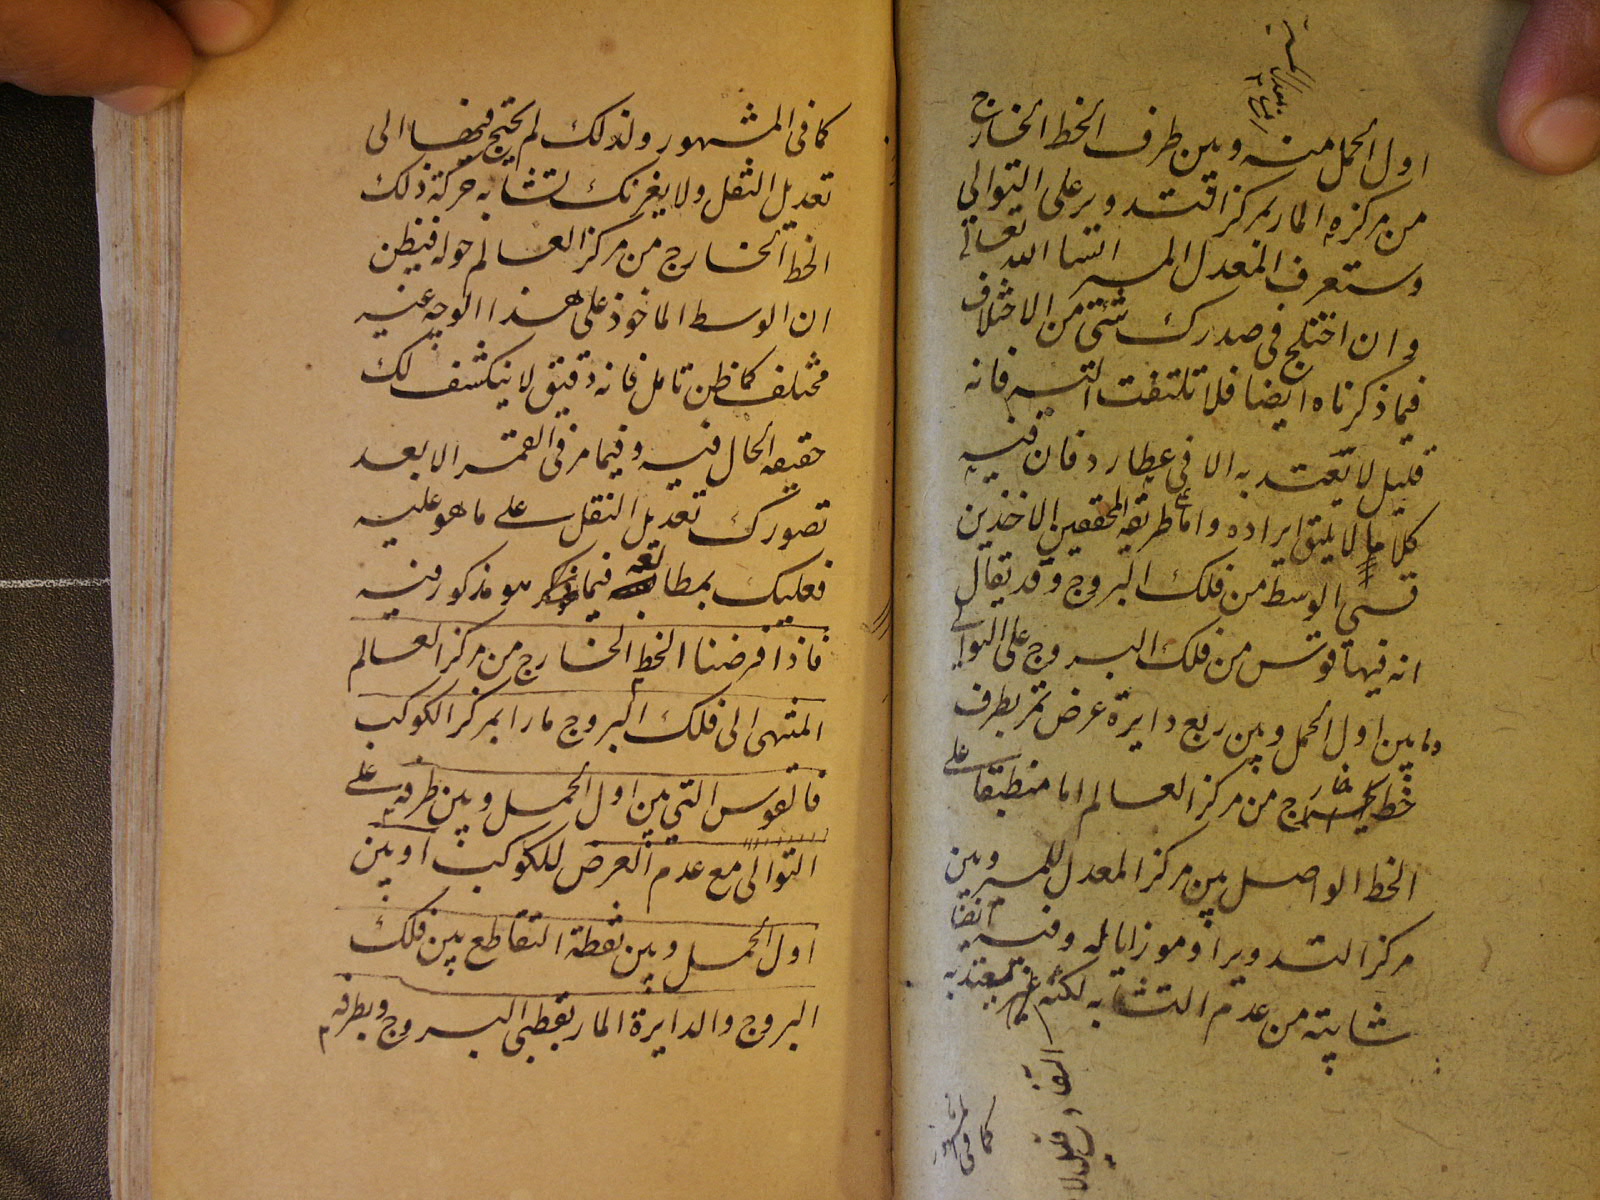 اول الحمل منه وبين طرف الخط الخارج
من مركزه المار بمركز التدوير على التوالي
وستعرف المعدل المسير انشا الله تعالى
وان اختلج في صدرك شئ من الاختلاف
فيما ذكرناه ايضا فلا تلتفت اليه فانه
قليل لا يعتد به الا في عطارد فان فيه
كلاما لا يليق ايراده واما على طريقة المحققين الاخذين
قسي الوسط من فلك البروج وقد يقال
انه فيها قوس من فلك البروج على التوالي
ما بين اول الحمل وبين ربع دايرة عرض تمر بطرف
خط خارج من مركز العالم اما منطبقا على
الخط الواصل بين مركز المعدل للمسير وبين
مركز التدوير او موازيا له وفيه ايضا
شايبة من عدم التشابه لكنه غير معتد به
كما في المشهور
كما في المشهور ولذلك لم يحتج فيها الى
تعديل النقل ولا يغرنك تشابه حركة ذلك
الخط الخارج من مركز العالم حوله فيظن
ان الوسط الماخوذ على هذا الوجه غير
مختلف كما ظن تامل فانه دقيق لا ينكشف لك
حقيقه الحال فيه وفيما مر في القمر الا بعد
تصورك تعديل النقل على ما هو عليه
فعليك بمطالعة فيما هو مذكور فيه
فاذا فرضنا الخط الخارج من مركز العالم
المنتهى الى فلك البروج مارا بمركز الكوكب
فالقوس التي بين اول الحمل وبين طرفه على
التوالى مع عدم العرض للكوكب او بين
اول الحمل وبين نقطة التقاطع بين فلك
البروج والدايرة المار بقطبي البروج وبطرفه